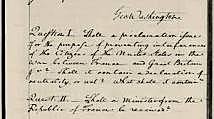 Go: Washington
Question I. Shall a proclamation issue
for the purpose of preventing interferences
of the Citizens of the United States in the
war between France and Great Britain
&ca? Shall it contain a declaration of
neutrality or not? What shall it contain?
Quest. II. Shall a Minister from the
Republic of France be received?